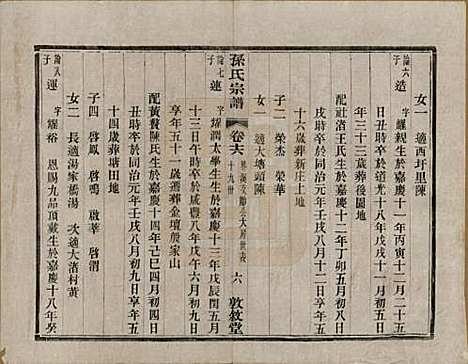 女一 適西圩里陳
綸六子 造 字耀親生於嘉慶十一年丙寅十一月二十五
日丑時卒於道光十八年戊戌十一月初三日享
年三十三歲葬後園地
配社渚王氏生於嘉慶十二年丁卯五月初八日
戌時卒於同治元年壬戌八月十二日享年五
十六歲葬新庄土地
子二 榮杰 榮華
女一 適大塘頭陳
綸七子 運 字耀潤太學生生於嘉慶十三年戊辰閏五月
孫氏宗譜
卷六
十九世
六
敦敘堂
十三日午時卒於咸豐八年戊午六月初九日
享年五十一歲遷葬金壇於家山
配黃聲陳氏生於嘉慶十四年己巳四月初八日
丑時卒於同治元年壬戌八月初九日享年五
十四歲葬於塘田地
子四 啓鳳 啓鳴 啟莘 啓渭
女二 長適湯家橋湯 次適大渚村黃
綸八子 運 字耀裕 恩賜九品頂戴生於嘉慶十八年癸